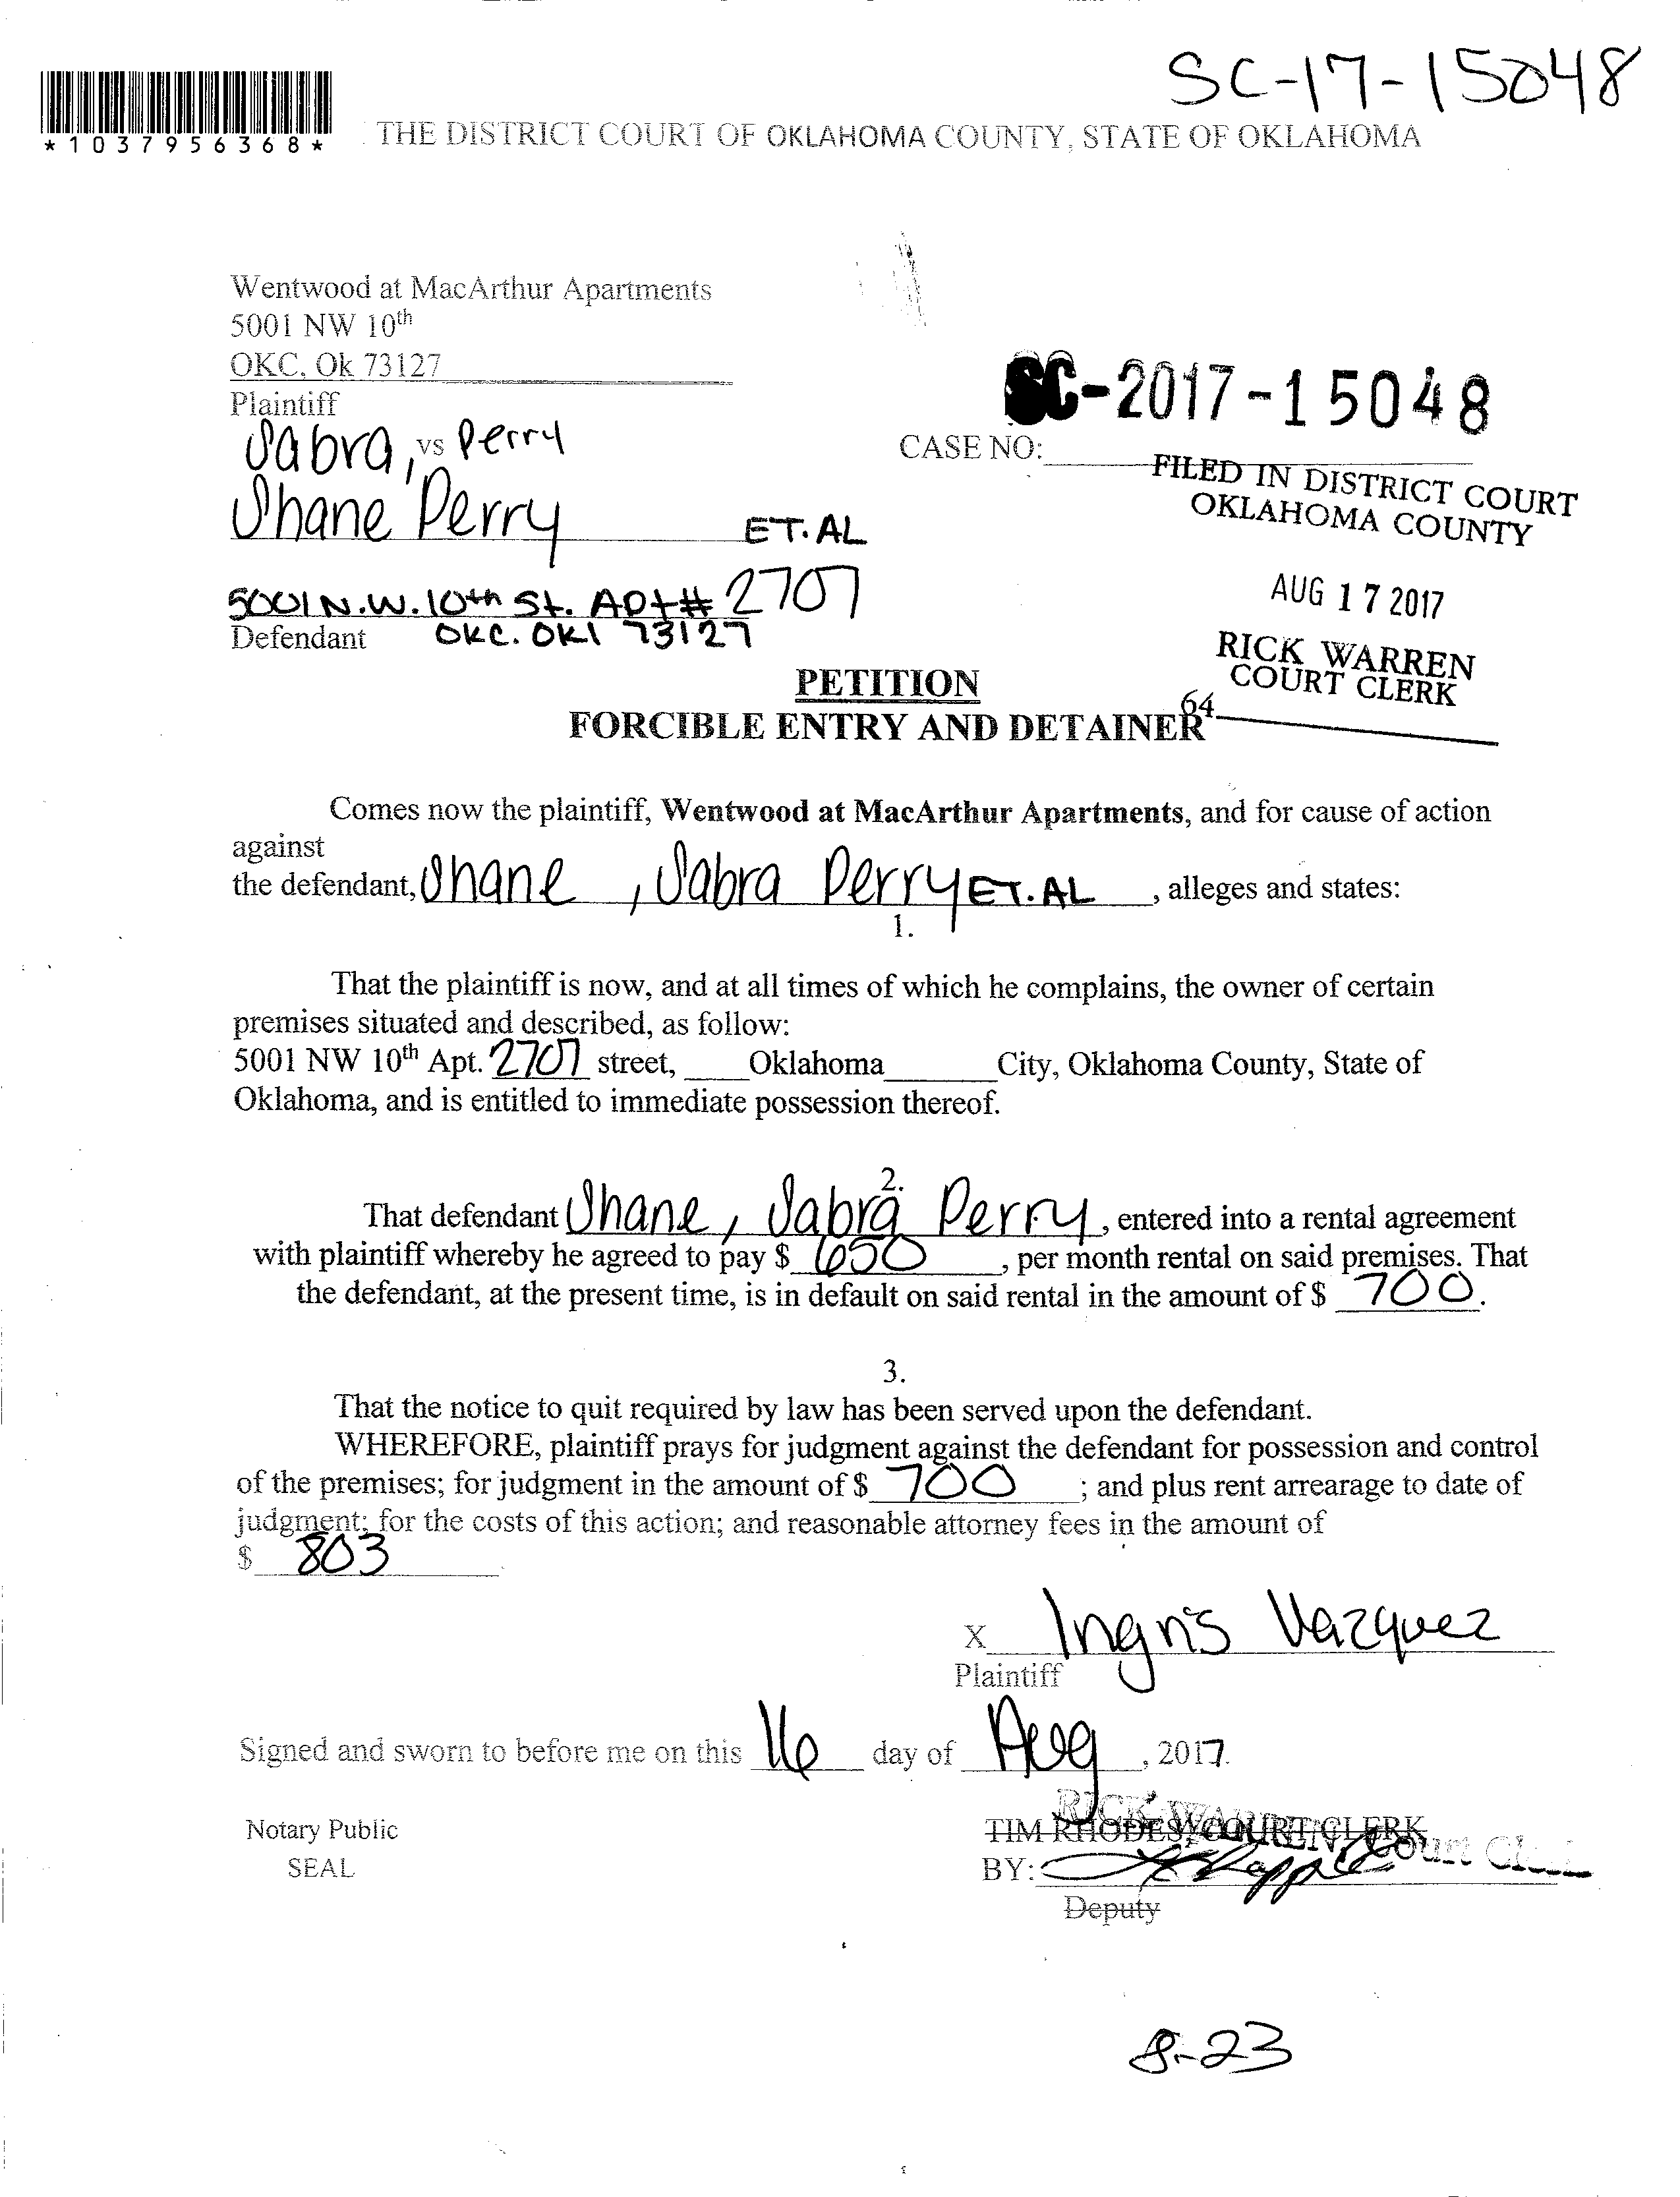 SC-17-15048
*1037956368*
THE DISTRICT COURT OF OKLAHOMA COUNTY, STATE OF OKLAHOMA
Wentwood at MacArthur Apartments
5001 NW 10th
OKC, Ok 73127
Plaintiff
Sabra, vs Perry
Shane Perry ET.AL
5001 N.W. 10th St. Apt# 2707
Defendant OKC. OKl 73127
SC-2017-15048
CASE NO:
FILED IN DISTRICT COURT
OKLAHOMA COUNTY
AUG 17 2017
RICK WARREN
COURT CLERK
64
PETITION
FORCIBLE ENTRY AND DETAINER
Comes now the plaintiff, Wentwood at MacArthur Apartments, and for cause of action
against
the defendant, Shane , Sabra Perry ET.AL , alleges and states:
1.
That the plaintiff is now, and at all times of which he complains, the owner of certain
premises situated and described, as follow:
5001 NW 10th Apt. 2707 street, Oklahoma City, Oklahoma County, State of
Oklahoma, and is entitled to immediate possession thereof.
2.
That defendant Shane, Sabra Perry, entered into a rental agreement
with plaintiff whereby he agreed to pay $ 650 , per month rental on said premises. That
the defendant, at the present time, is in default on said rental in the amount of $ 700.
3.
That the notice to quit required by law has been served upon the defendant.
WHEREFORE, plaintiff prays for judgment against the defendant for possession and control
of the premises; for judgment in the amount of $ 700 ; and plus rent arrearage to date of
judgment; for the costs of this action; and reasonable attorney fees in the amount of
$ 803
X Ingris Vazquez
Plaintiff
Signed and sworn to before me on this 16 day of Aug , 2017.
RICK WARREN, Court Clerk
Notary Public TIM RHODES, COURT CLERK
SEAL BY:
Deputy
8-23